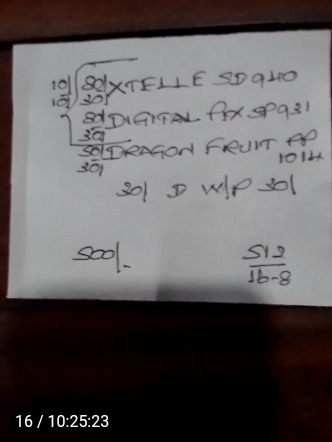 10/ 50/ XTELLE SD 940
10/ 30/
50/ DIGITAL FIX SP 931
30/
50/ DRAGON FRUIT PP
30/ 1014
30/ D W/P 30/
500/-
512
16-8
16 / 10:25:23